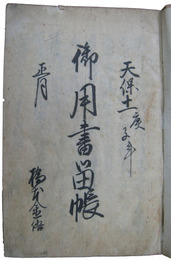 天保十一庚
子年
御用書留帳
正月
橋本